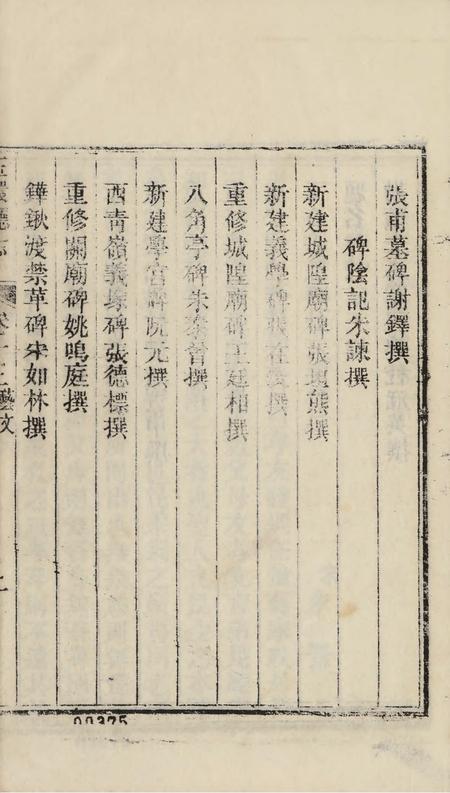 張甫墓碑謝鐸撰
碑陰記朱諫撰
新建城隍廟碑張坦熊撰
新建義學碑張在浚撰
重修城隍廟碑王廷相撰
八角亭碑朱秦曾撰
新建學宮碑阮元撰
西青嶺義塚碑張德標撰
重修關廟碑姚鳴庭撰
鏵鍬渡禁革碑宋如林撰
玉環廳志 卷十三藝文
00375